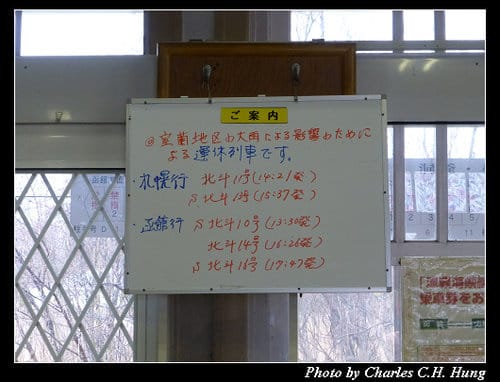 ご案内
◎室蘭地区の大雨による影響のために
よる運休列車です。
・札幌行 北斗11号(14:21発)
S北斗13号(15:37発)
・函館行 S北斗10号(13:30発)
北斗14号(16:26発)
S北斗16号(17:47発)
Photo by Charles C.H. Hung